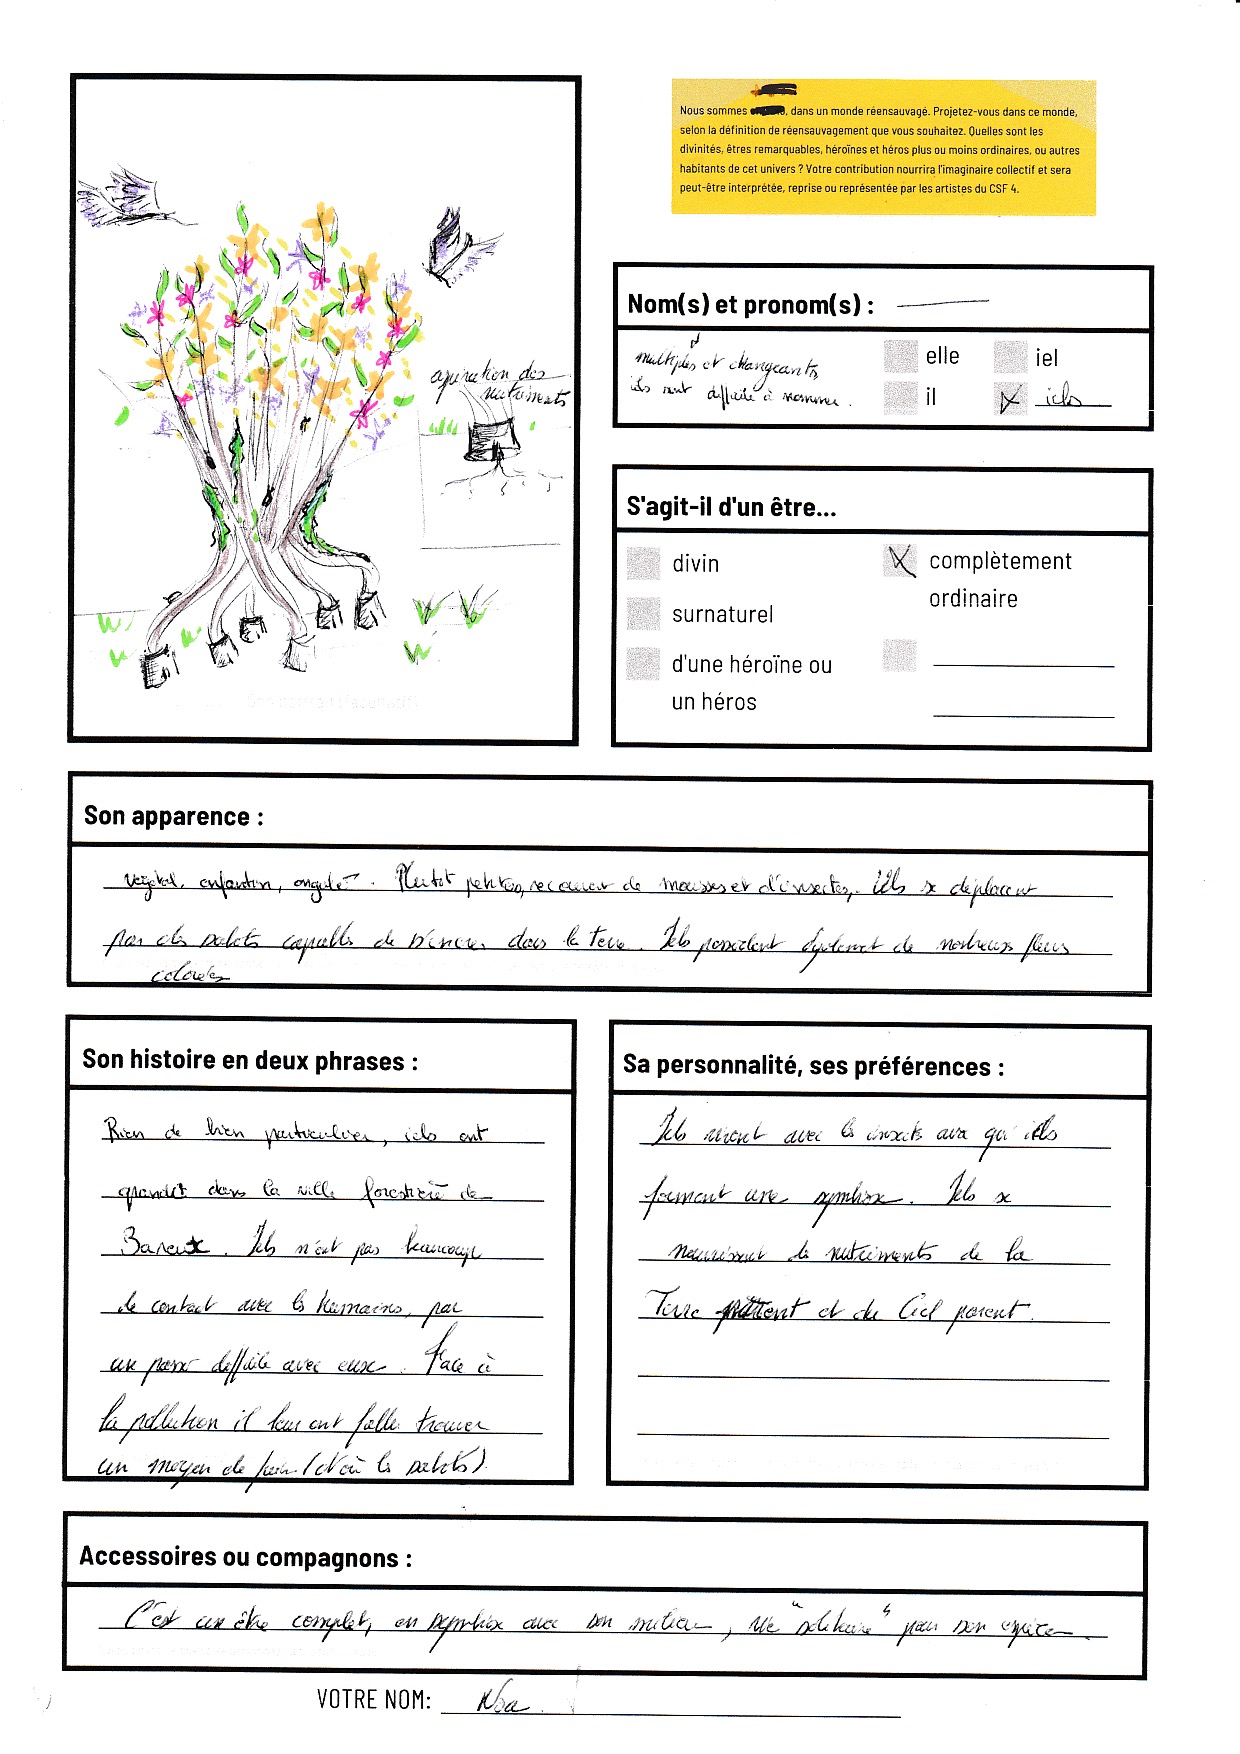 Nous sommes , dans un monde réensauvagé. Projetez-vous dans ce monde,
selon la définition de réensauvagement que vous souhaitez. Quelles sont les
divinités, êtres remarquables, héroïnes et héros plus ou moins ordinaires, ou autres
habitants de cet univers ? Votre contribution nourrira l'imaginaire collectif et sera
peut-être interprétée, reprise ou représentée par les artistes du CSF 4.
des
nutriments
Nom(s) et pronom(s) :
multiples et changeants,
ils sont difficile à nommer.
elle
iel
il
iels
S'agit-il d'un être...
divin
complètement
ordinaire
surnaturel
d'une héroïne ou
un héros
Son apparence :
végétal, enfantin, ongulé. Plutôt petites, recouvert de mousses et d'insectes, Iels se déplacent
par des sabots capables de s'ancrer dans la terre. Iels possèdent également de nombreuses fleurs
colorées
Son histoire en deux phrases :
Rien de bien particulier, iels ont
grandit dans la ville forestière de
. Iels n'ont pas beaucoup
de contact avec les humains, par
un passé difficile avec eux. Face à
la pollution il leur ont fallu trouver
un moyen de fuir (d'où les sabots).
Sa personnalité, ses préférences :
Iels vivent avec les insects avx qui iels
forment une symbiose. Iels se
nourrissent de nutriments de la
Terre et du Ciel parent.
Accessoires ou compagnons :
C'est un être complet, en symbiose avec son milieu, "solitaire" pour son espèce.
VOTRE NOM: Noa